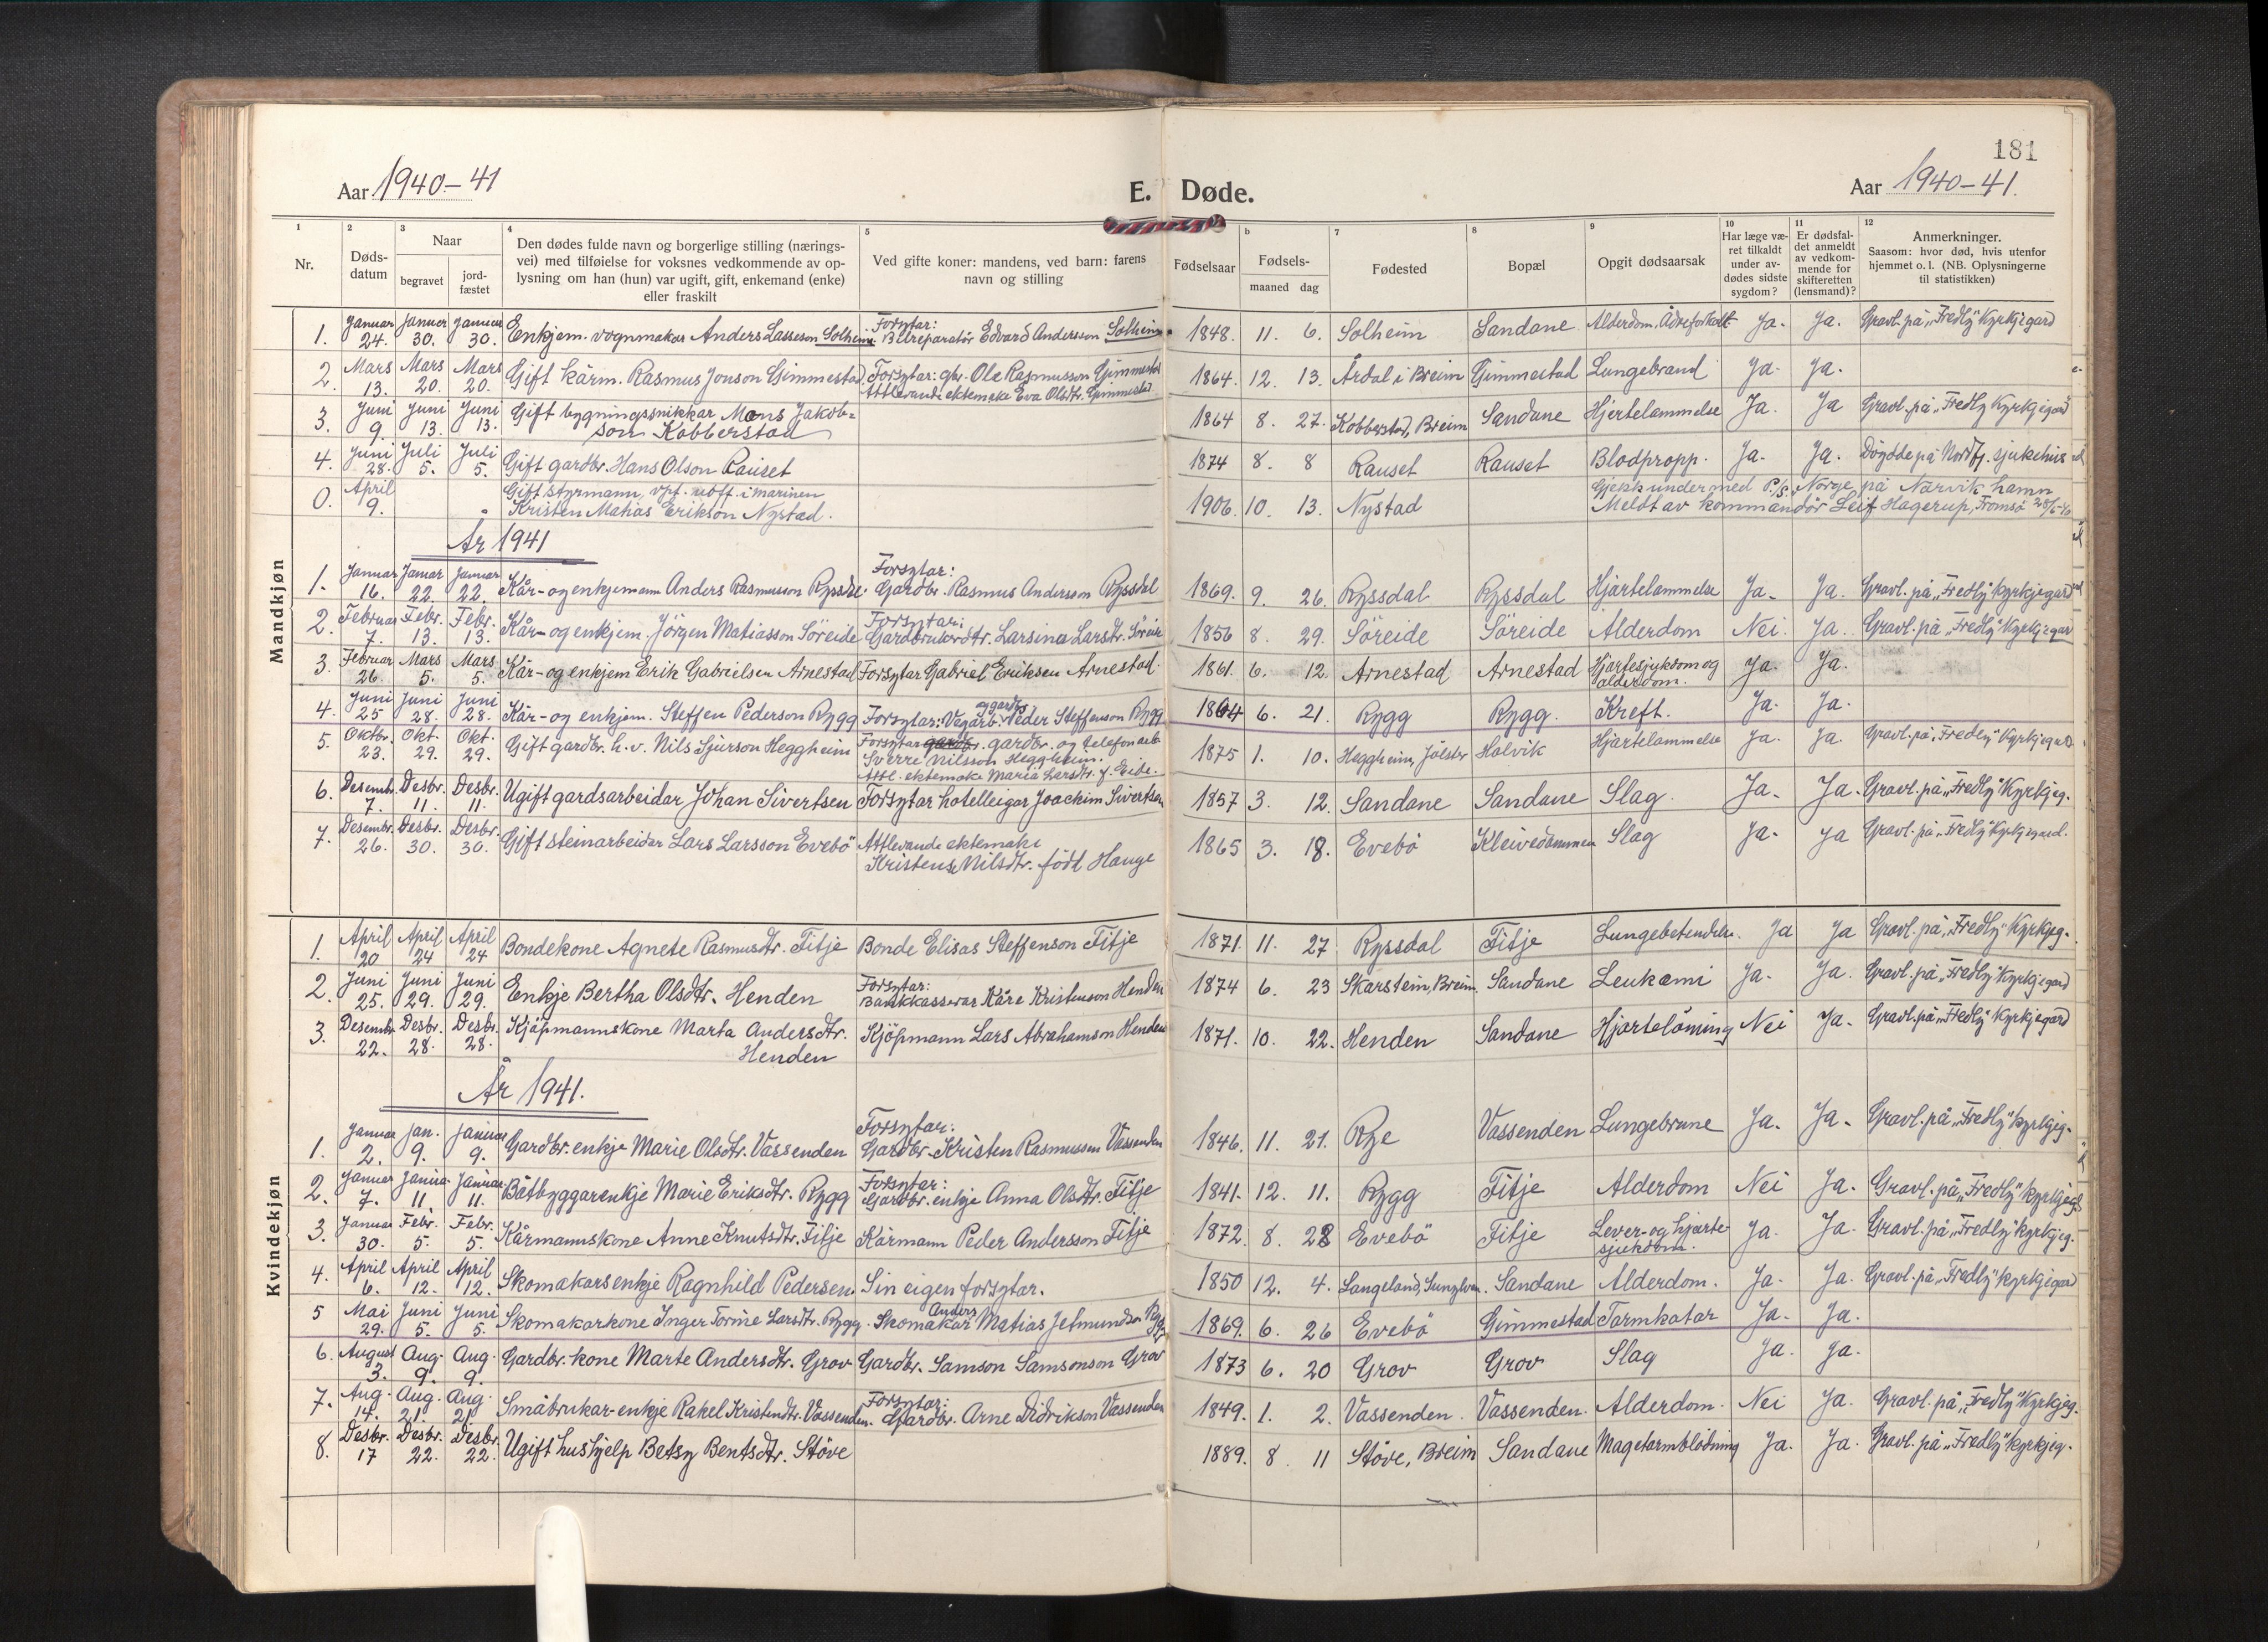 181
Aar 1940-41
E. Døde.
Aar 1940-41.
1 2 3 4 5 b 7 8 9 10 11 12
Nr.
Dødsdatum
Naar
begravet
jordfæstet
Den dødes fulde navn og borgerlige stilling (næringsvei) med tilføielse for voksnes vedkommende av oplysning om han (hun) var ugift, gift, enkemand (enke) eller fraskilt
Ved gifte koner: mandens, ved barn: farens navn og stilling
Fødselsaar
Fødsels-
maaned dag
Fødested
Bopæl
Opgit dødsaarsak
Har læge været tilkaldt under avdødes sidste sygdom?
Er dødsfaldet anmeldt av vedkommende for skifteretten (lensmand)?
Anmerkninger.
Saasom: hvor død, hvis utenfor hjemmet o. l. (NB. Oplysningerne til statistikken)
Mandkjøn
1. Januar 24. Januar 30. Januar 30. Enkjem. vognmakar Anders Lasseson Solheim. Forsytar: Bilreparatör Edvard Andersson Solheim 1848. 11 6. Solheim Sandane Alderdom, Ådreforkalk. Ja. Ja. Gravl. på "Fredly" Kyrkjegard
2. Mars 13. Mars 20. Mars 20. Gift kårm. Rasmus Jonson Gimmestad. Forsytar: gbr. Ole Rasmusson Gimmestad Attlevande ektemake Eva Olsdtr. Gimmestad 1864. 12. 13. Årdal i Breim Gimmestad Lungebrand Ja. Ja.
3. Juni 9. Juni 13. Juni 13. Gift bygningssnikkar Mons Jakobson Kobberstad 1864 8. 27. Kobberstad, Breim Sandane Hjertelammelse Ja. Ja Gravl. på "Fredly Kyrkjegard"
4. Juni 28. Juli 5. Juli 5. Gift gardbr. Hans Olson Rauset 1874 8. 8 Rauset Rauset Blodpropp. Ja. Ja. Döydde på Nordfj. sjukehus
0. April 9. Gift styrmann, vpl. uoff. i marinen Kristen Matias Erikson Nystad. 1906. 10. 13. Nystad Gjekk under med P/S. Norge på Narvik hamn Meldt av kommandör Leif Hagerup, Tromsö 28/6-40
År 1941
1. Januar 16. Januar 22. Januar 22. Kår- og enkjemann Anders Rasmusson Ryssdal. Forsytar: Gardbr. Rasmus Andersson Ryssdal 1869. 9. 26. Ryssdal Ryssdal Hjartelammelse Ja. Ja. Gravl. på "Fredly" kyrkjegard
2. Februar 7. Febr. 13. Febr. 13. Kår- og enkjem. Jörgen Matiasson Söreide Forsytar: Gardbrukardtr. Larsina Larsdtr. Söreide 1856 8. 29. Söreide Söreide Alderdom Nei. Ja. Gravl. på "Fredly" kyrkjegar
3. Februar 26. Mars 5. Mars 5. Kår- og enkjem Erik Gabrielsen Arnestad Forsytar Gabriel Eriksen Arnestad. 1861. 6. 12. Arnestad Arnestad Hjartesjukdom og alderdom. Ja. Ja.
4. Juni 25 Juni 28. Juni 28. Kår- og enkjem. Steffen Pederson Rygg Forsytar: Vegarb. og gardbr. Peder Steffenson Rygg 1864 6. 21. Rygg Rygg. Kreft. Ja. Ja.
5. Oktbr. 23. Okt. 29. Okt. 29. Gift gardbr. h.v. Nils Sjurson Heggheim Forsytar gardbr. gardbr. og telefonarb. Sverre Nilsson Heggheim. Attl. ektemake Maria Larsdtr. f. Eide. 1875 1. 10. Heggheim, Jölster Holvik Hjartelammelse Ja. Ja. Gravl. på "Fredly" Kyrkjegard.
6. Desembr. 7. Desbr. 11. Desbr. 11. Ugift gardsarbeidar Johan Sivertsen Forsytar hotelleigar Joachim Sivertsen 1857 3. 12. Sandane Sandane Slag. Ja. Ja. Gravl. på "Fredly" Kyrkjeg.
7. Desembr. 26. Desbr. 30. Desbr. 30. Gift steinarbeidar Lars Larsson Evebö Attlevande ektemake Kristense Nilsdtr. født Hauge 1865 3. 18. Evebö Kleivedammen Slag Ja. Ja Gravl. på "Fredly" Kyrkjegard.
Kvindekjøn
1. April 20 April 24 April 24 Bondekone Agnete Rasmusdtr. Fitje Bonde Elisas Steffenson Fitje 1871. 11. 27 Ryssdal Fitje Lungebetendelse. Ja Ja Gravl. på "Fredly" Kyrkjeg.
2. Juni 25. Juni 29. Juni 29. Enkje Bertha Olsdtr. Henden Forsytar: Bankkasserar Kåre Kristenson Henden 1874 6. 23 Skarstein, Breim. Sandane Leukemi Ja. Ja. Gravl. på "Fredly" Kyrkjegard
3. Desembr. 22. Desbr. 28. Desbr. 28. Kjöpmannskone Marta Andersdtr. Henden Kjöpmann Lars Abrahamson Henden 1871. 10. 22. Henden Sandane Hjarteläming Nei Ja. Gravl. på "Fredly" Kyrkjegard
År 1941.
1. Januar 2. Jan. 9. Januar 9. Gardbr. enkje Marie Olsdtr. Vassenden Forsytar: Gardbr. Kristen Rasmussen Vassenden 1846. 11. 21. Rye Vassenden Lungebrune Ja. Ja. Gravl. på "Fredly" kyrkjeg.
2. Januar 7. Januar 11. Januar 11. Båtbyggarenkje Marie Eriksdtr. Rygg Forsytar: Gardbr. enkje Anna Olsdtr. Fitje 1841. 12. 11. Rygg Fitje Alderdom Nei Ja. Gravl. på "Fredly" kyrkjeg.
3. Januar 30. Febr. 5. Febr. 5. Kårmannskone Anne Knutsdtr. Fitje Kårmann Peder Andersson Fitje 1872. 8. 28 Evebö Fitje Lever- og hjartesjukdom. Ja. Ja. Gravl. på "Fredly" kyrkjeg.
4. April 6. April 12. April 12. Skomakarsenkje Ragnhild Pedersen. Sin eigen forsytar. 1850 12. 4. Langeland, Sandane Alderdom. Ja. Ja. Gravl. på "Fredly" kyrkjegard
5 Mai 29. Juni 5. Juni 5. Skomakarkone Inger Torine Larsdtr. Rygg. Skomakar Anders Matias Jetmundson Rygg 1869. 6. 26 Evebö Gimmestad Tarmkatar Ja. Ja.
6. August 3. Aug. 9. Aug. 9. Gardbr. kone Marte Andersdtr. Grov Gardbr. Samson Samsonson Grov 1873 6. 20 Grov Grov Slag Ja. Ja.
7. Aug. 14. Aug. 21. Aug. 21. Småbrukar-enkje Rakel Kristendtr. Vassenden. Forsytar: Gardbr. Arne Didrikson Vassenden 1849. 1. 2. Vassenden. Vassenden. Alderdom. Nei Ja. Gravl. på "Fredly" Kyrkjeg.
8. Desbr. 17 Desbr. 22. Desbr. 22. Ugift hushjelp Betsy Bentsdtr. Stöve 1889. 8. 11 Stöve, Breim Sandane Magetarmblödning Ja. Ja. Gravl. på "Fredly" kyrkjeg.